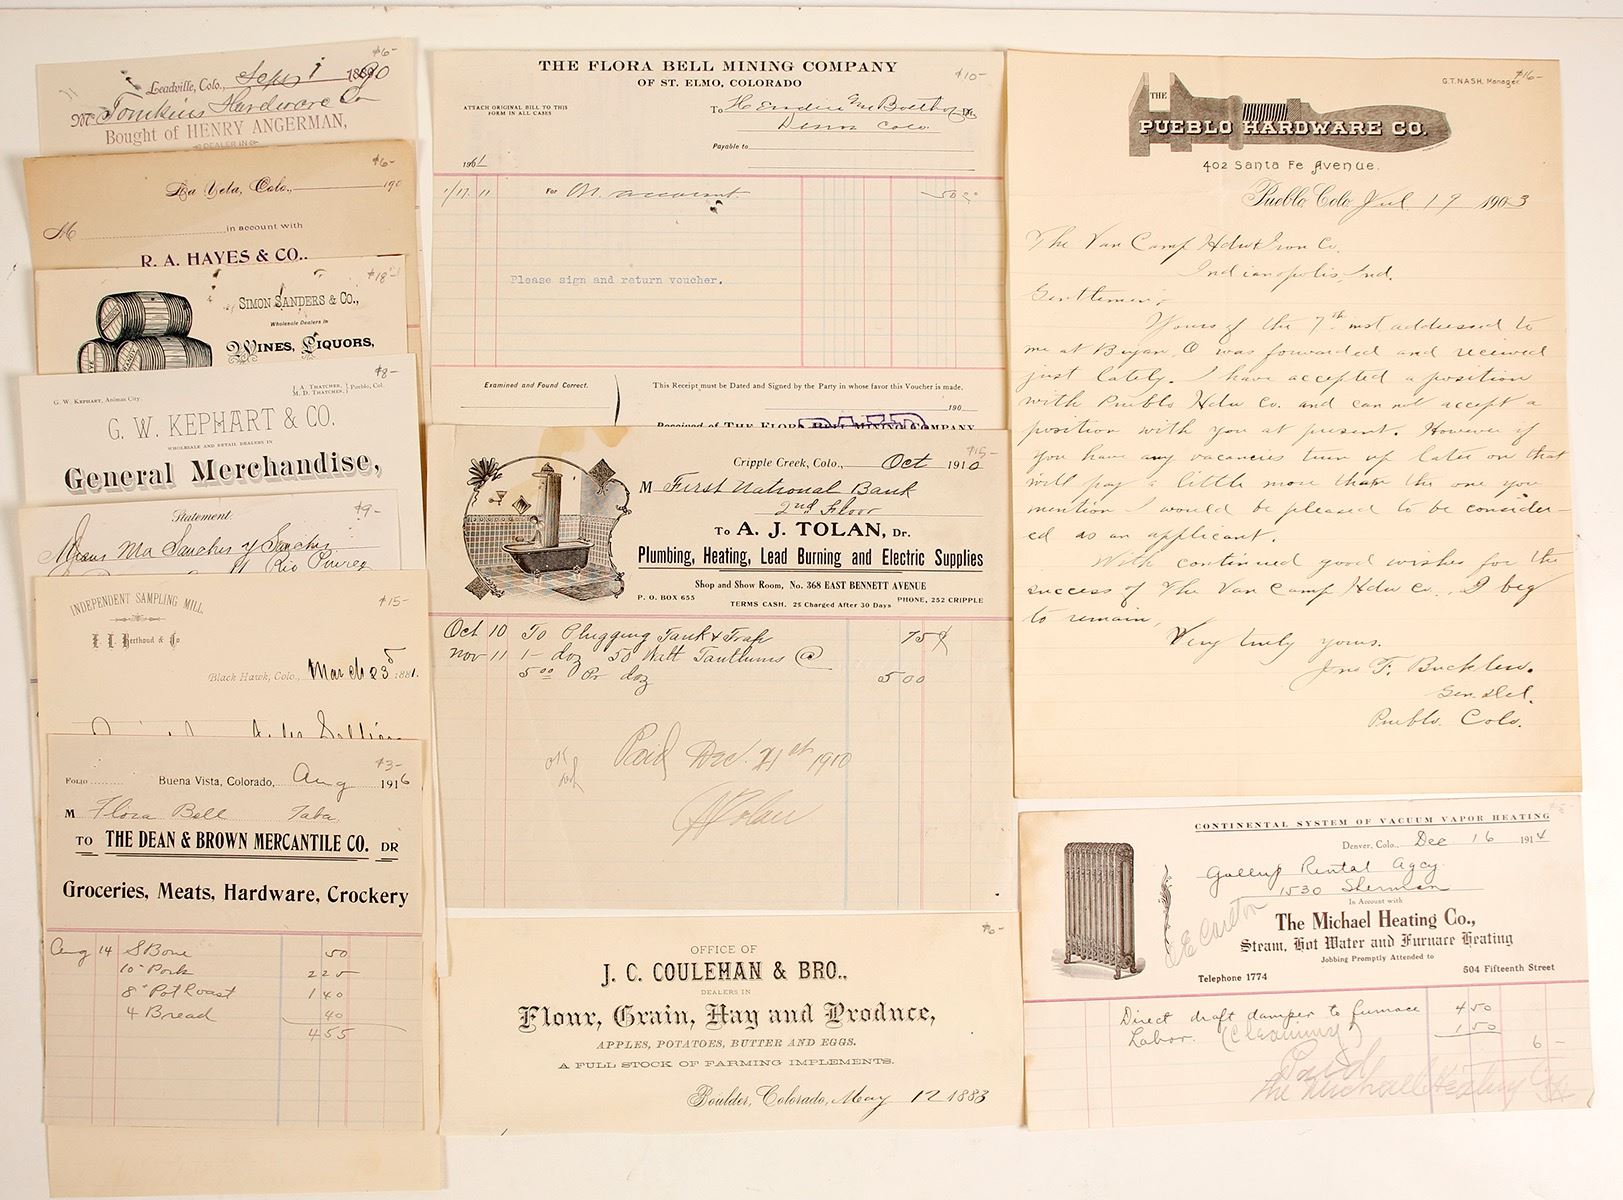 $6-
Leadville, Colo., Sept 1 1890
Mr. Tomkins Hardware Co
Bought of HENRY ANGERMAN,
DEALER IN
$6-
La Veta, Colo., 190
M in account with
R. A. HAYES & CO..
$18-
SIMON SANDERS & CO.,
Wholesale Dealers in
WINES, LIQUORS,
$8-
G. W. KEPHART, Animas City.
J. A. THATCHER, M. D. THATCHER, Pueblo, Col.
G. W. KEPHART & CO.
WHOLESALE AND RETAIL DEALERS IN
General Merchandise,
$9-
Statement.
Sanches y Sanches
$15-
INDEPENDENT SAMPLING MILL.
Berthoud & Co
Black Hawk, Colo., March 23d 1881.
$3-
FOLIO
Buena Vista, Colorado, Aug 1916
M Flora Bell
TO THE DEAN & BROWN MERCANTILE CO. DR
Groceries, Meats, Hardware, Crockery
Aug 14 S Bone 50
10" Pork 2 25
8" Pot Roast 1 40
4 Bread 40
4 55
THE FLORA BELL MINING COMPANY
OF ST. ELMO, COLORADO
$10-
ATTACH ORIGINAL BILL TO THIS
FORM IN ALL CASES
To
Payable to
1/17 11 For On account 50
Please sign and return voucher.
Examined and Found Correct.
This Receipt must be Dated and Signed by the Party in whose favor this Voucher is made.
190
Received of THE FLORA BELL MINING COMPANY
PAID
$15-
Cripple Creek, Colo., Oct 1910
M First National Bank
2nd Floor
To A. J. TOLAN, Dr.
Plumbing, Heating, Lead Burning and Electric Supplies
Shop and Show Room, No. 368 EAST BENNETT AVENUE
P. O. BOX 655
TERMS CASH. 2% Charged After 30 Days
PHONE, 252 CRIPPLE
Oct 10 To Plugging Tank & Trap 75¢
Nov 11 1- doz 50 Watt Tantlums @
5.00 Pr doz 5 00
OK
Paid Dec. 21st 1910
AJ Tolan
$6-
OFFICE OF
J. C. COULEHAN & BRO..
DEALERS IN
Flour, Grain, Hay and Produce,
APPLES, POTATOES, BUTTER AND EGGS.
A FULL STOCK OF FARMING IMPLEMENTS.
Boulder, Colorado, May 12 1883
G.T. NASH, Manager
$16-
THE
PUEBLO HARDWARE CO.
402 Santa Fe Avenue.
Pueblo, Colo Jul 19 1903
The Van Camp Hdw & Iron Co.
Indianapolis, Ind.
Gentlemen;
Yours of the 7th inst addressed to
me at Bryan, O was forwarded and received
just lately. I have accepted a position
with Pueblo Hdw Co. and can not accept a
position with you at present. However if
you have any vacancies turn up later on that
will pay a little more than the one you
mention I would be pleased to be consider-
ed as an applicant.
With continued good wishes for the
success of The Van Camp Hdw Co., I beg
to remain,
Very truly yours.
Jno F. Bucklew.
Gen. Del.
Pueblo. Colo.
CONTINENTAL SYSTEM OF VACUUM VAPOR HEATING
Denver, Colo., Dec 16 1914
Gallup Rental Agcy
1530 Sherman
In Account with
The Michael Heating Co.,
Steam, Hot Water and Furnace Heating
Jobbing Promptly Attended to
Telephone 1774
504 Fifteenth Street
Direct draft damper to furnace 4 50
Labor. (Cleaning) 1 50
6 -
Paid
The Michael Heating Co